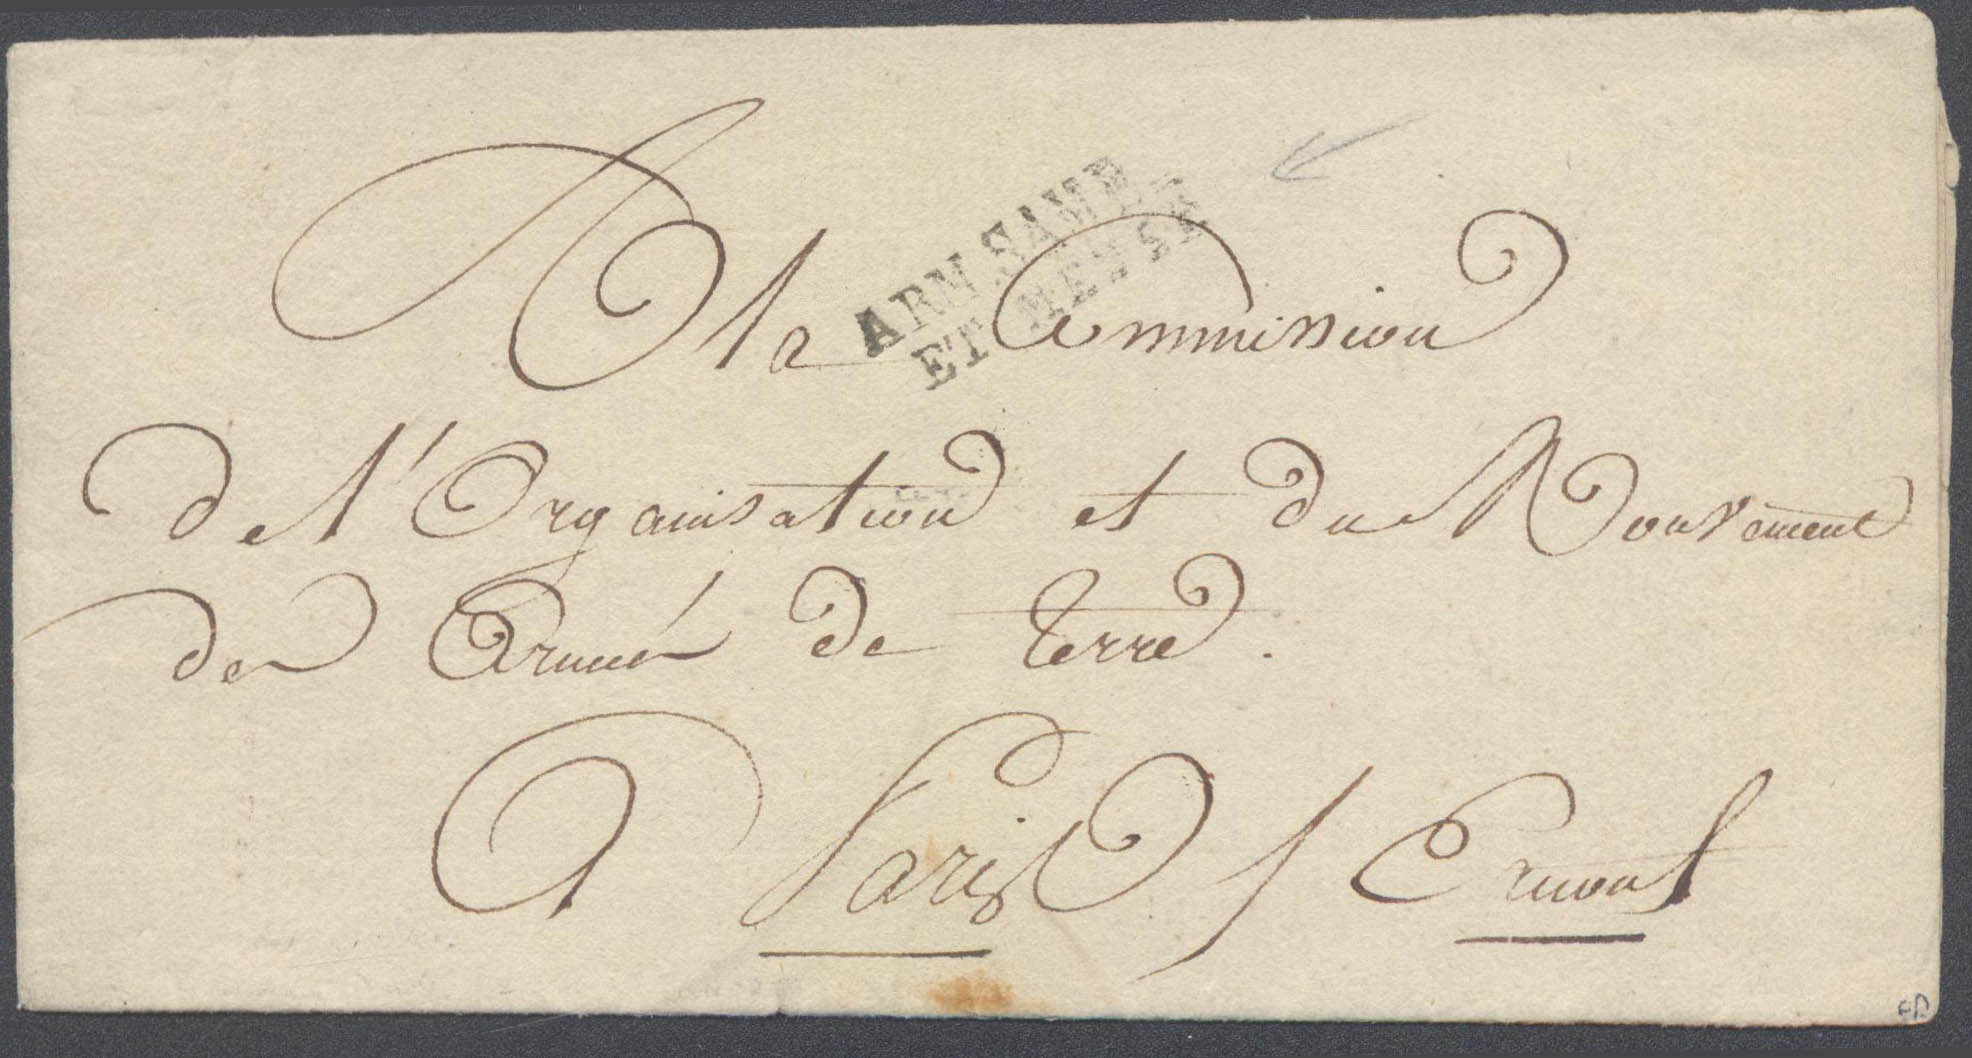 ARM. SAMB.
ET MEUSE
A la Commission
de l'Organisation et du Mouvement
des Armées de terre.
A Paris